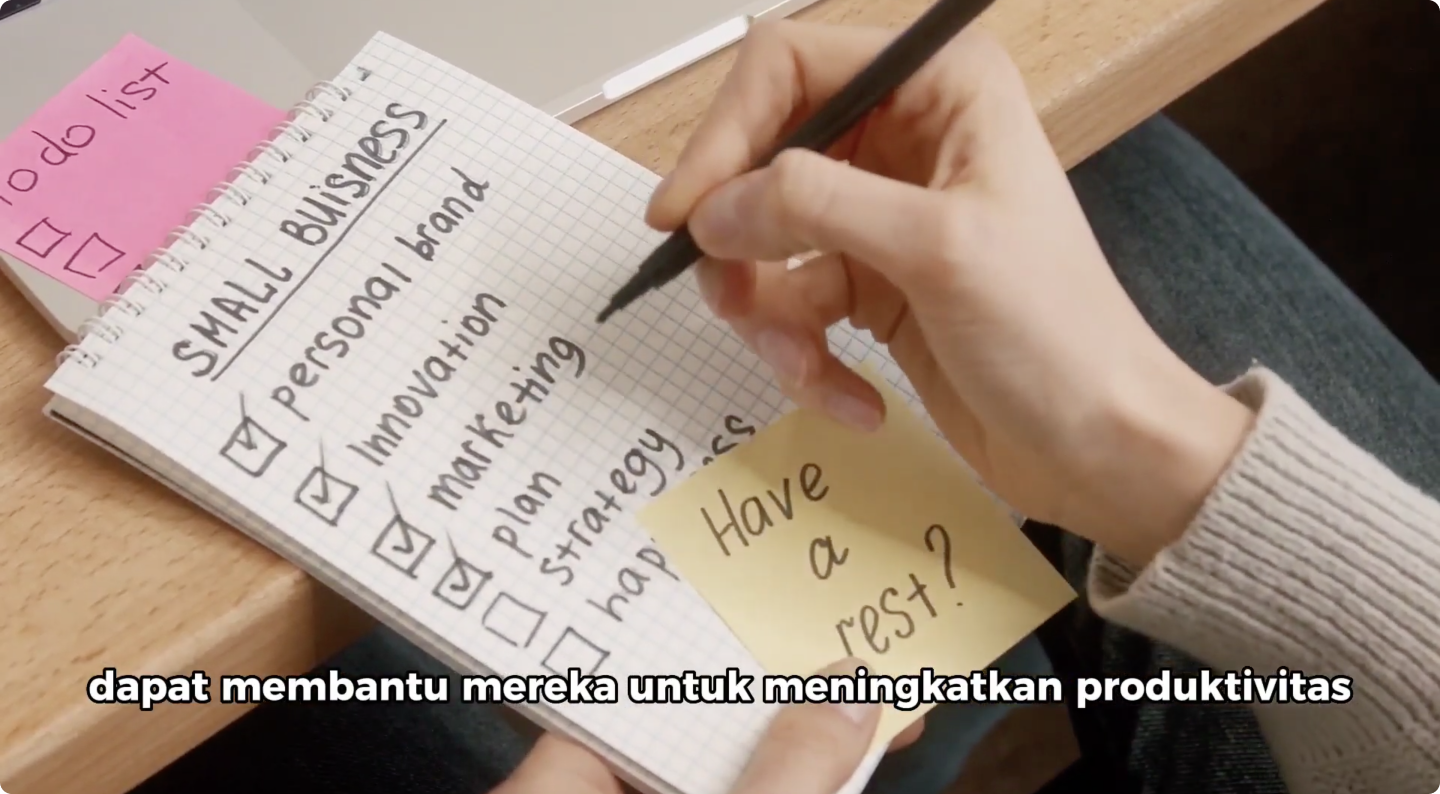 To do list
SMALL BUISNESS
personal brand
Innovation
marketing
plan
strategy
Have
a
rest?
dapat membantu mereka untuk meningkatkan produktivitas